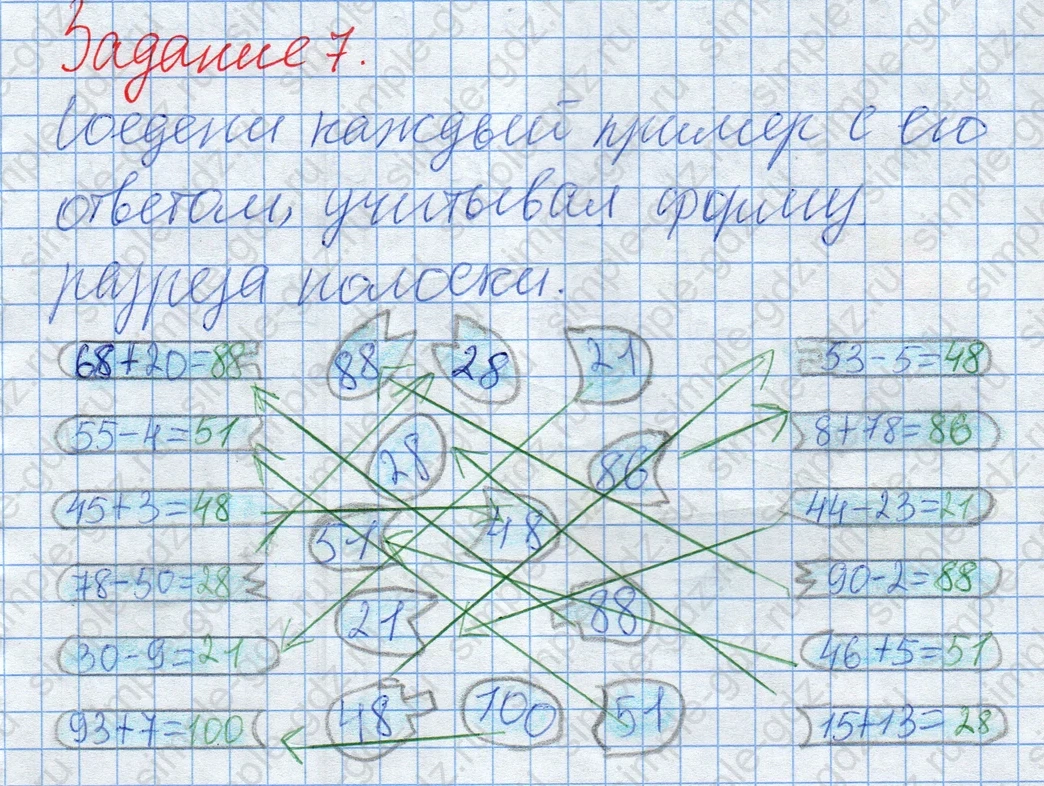 Задание 7.
Соедени каждый пример с его
ответом, учитывая форму
разреза полоски.
68+20=88 88 28 21 53-5=48
55-4=51 28 86 8+78=86
45+3=48 51 48 44-23=21
78-50=28 90-2=88
30-9=21 21 88 46+5=51
93+7=100 48 100 51 15+13=28
simple-gdz.ru